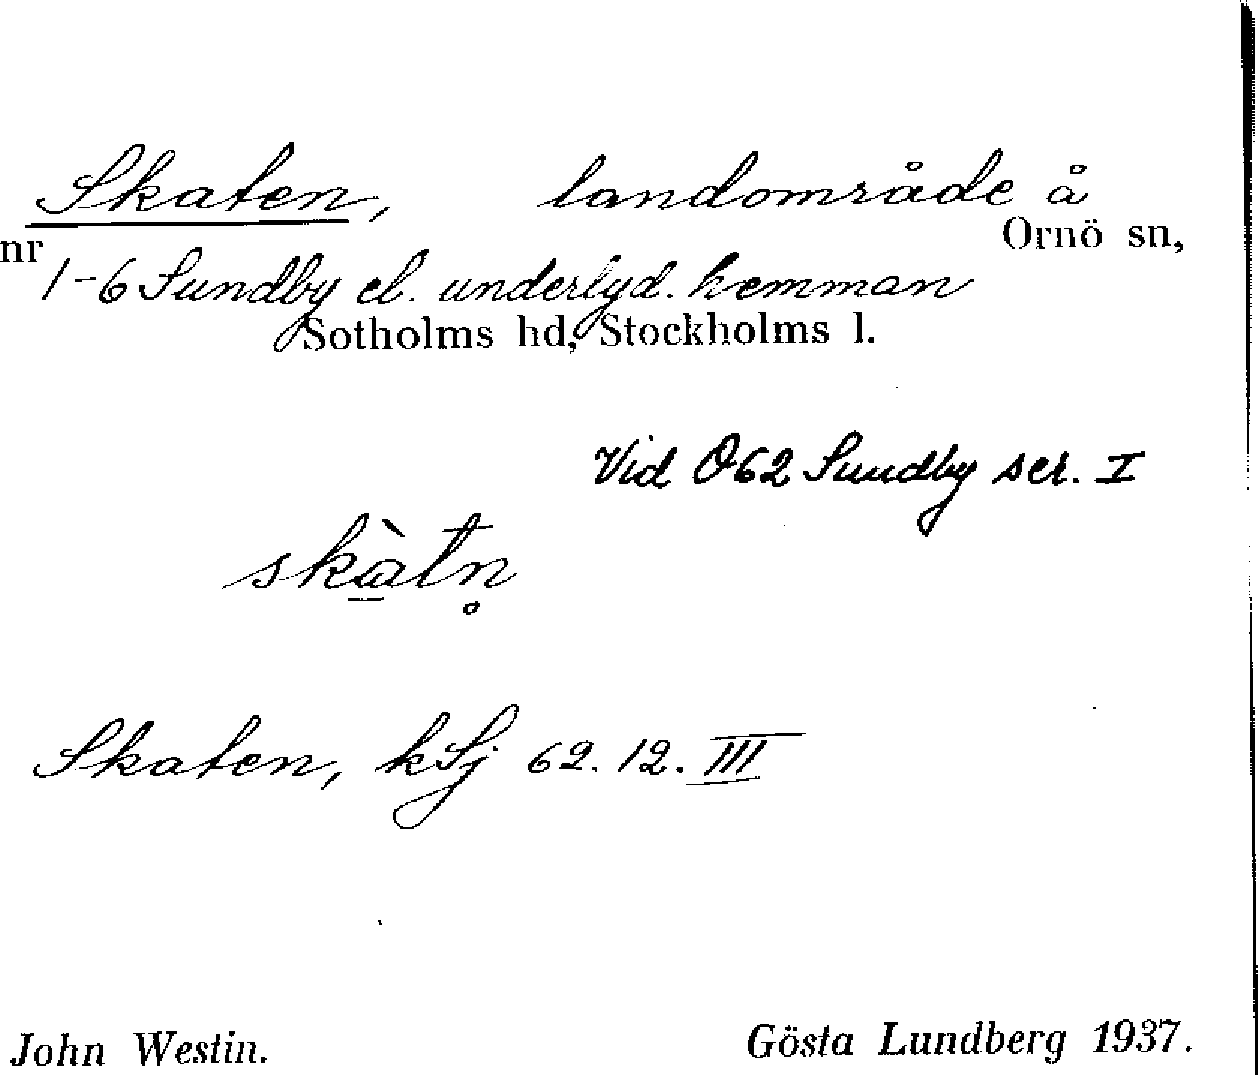 Skaten, landområde å
nr Ornö sn,
1-6 Sundby el. underlyd. hemman
Sotholms hd, Stockholms l.
Vid Ö62 Sundby scr. I
skàtn̥
Skaten, kSj 62. 12. III
John Westin. Gösta Lundberg 1937.